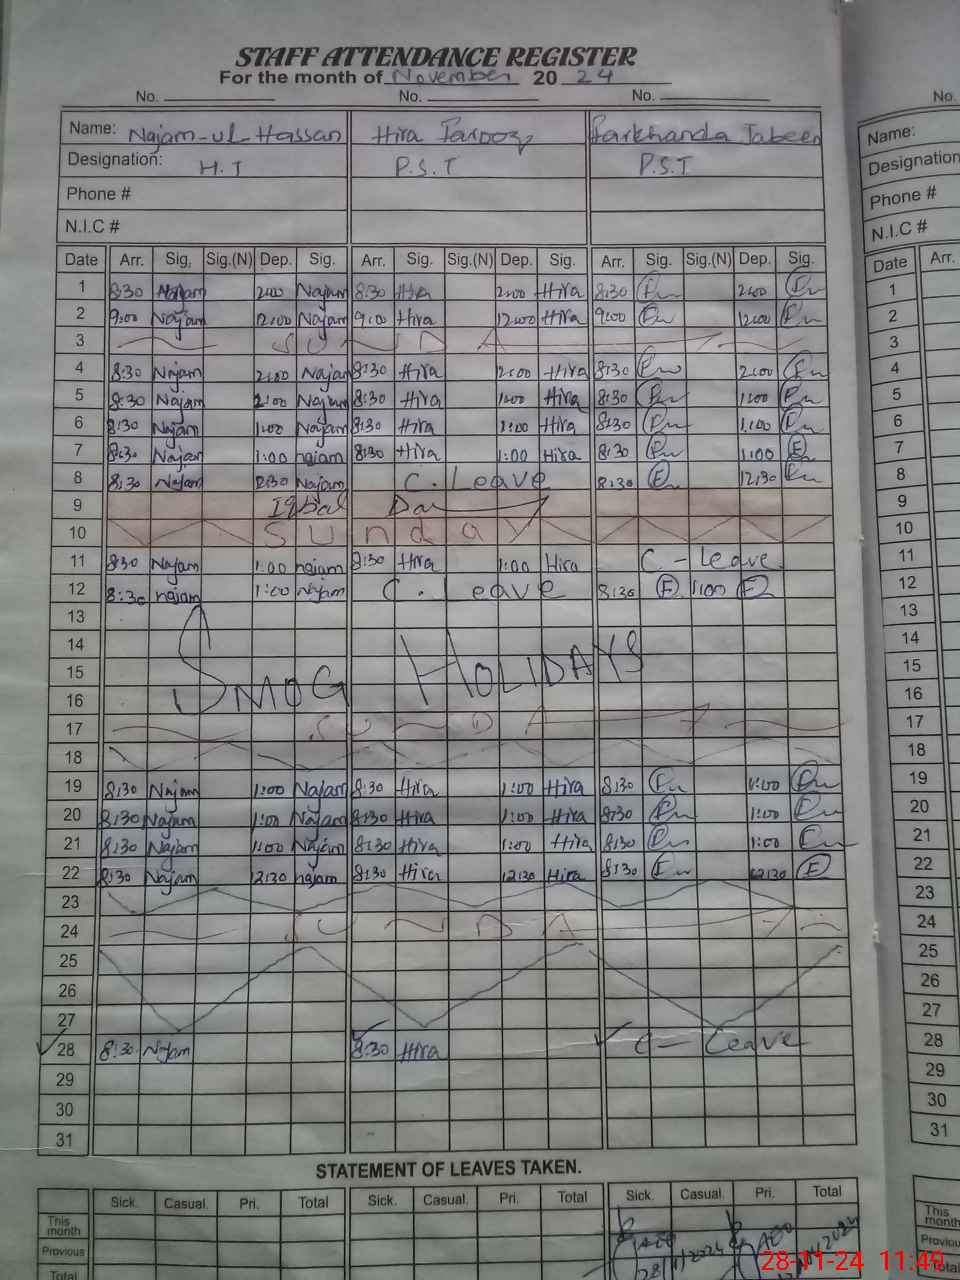 STAFF ATTENDANCE REGISTER
For the month of November 2024
No. No. No. No.
Name: Najam-ul Hassan Hira Farooq Farkhanda Jabeen Name:
Designation: H.T P.S.T P.S.T Designation
Phone # Phone #
N.I.C # N.I.C #
Date Arr. Sig, Sig.(N) Dep. Sig. Arr. Sig. Sig.(N) Dep. Sig. Arr. Sig. Sig.(N) Dep. Sig. Date Arr.
1 8:30 Najam 2:00 Najam 8:30 Hira 2:00 Hira 8:30 2:00 1
2 9:00 Najam 12:00 Najam 9:00 Hira 12:00 Hira 9:00 12:00 2
3 S U N D A Y 3
4 8:30 Najam 2:00 Najam 8:30 Hira 2:00 Hira 8:30 2:00 4
5 8:30 Najam 2:00 Najam 8:30 Hira 1:00 Hira 8:30 1:00 5
6 8:30 Najam 1:00 Najam 8:30 Hira 1:00 Hira 8:30 1:00 6
7 8:30 Najam 1:00 najam 8:30 Hira 1:00 Hira 8:30 1:00 7
8 8:30 Najam 12:30 Najam C. Leave 8:30 12:30 8
9 Iqbal Day 9
10 S u n d a y 10
11 8:30 Najam 1:00 najam 8:30 Hira 1:00 Hira C - Leave 11
12 8:30 najam 1:00 Najam C. Leave 8:30 1:00 12
13 13
14 14
15 SMOG HOLIDAYS 15
16 16
17 S U N D A Y 17
18 18
19 8:30 Najam 1:00 Najam 8:30 Hira 1:00 Hira 8:30 1:00 19
20 8:30 Najam 1:00 Najam 8:30 Hira 1:00 Hira 8:30 1:00 20
21 8:30 Najam 1:00 Najam 8:30 Hira 1:00 Hira 8:30 1:00 21
22 8:30 Najam 12:30 najam 8:30 Hira 12:30 Hira 8:30 12:30 22
23 23
24 S U N D A Y 24
25 25
26 26
27 27
28 8:30 Najam 8:30 Hira C - Leave 28
29 29
30 30
31 31
STATEMENT OF LEAVES TAKEN.
Sick. Casual. Pri. Total Sick. Casual. Pri. Total Sick. Casual. Pri. Total
This month This month
Previous Previous
Total Total
28-11-24 11:49